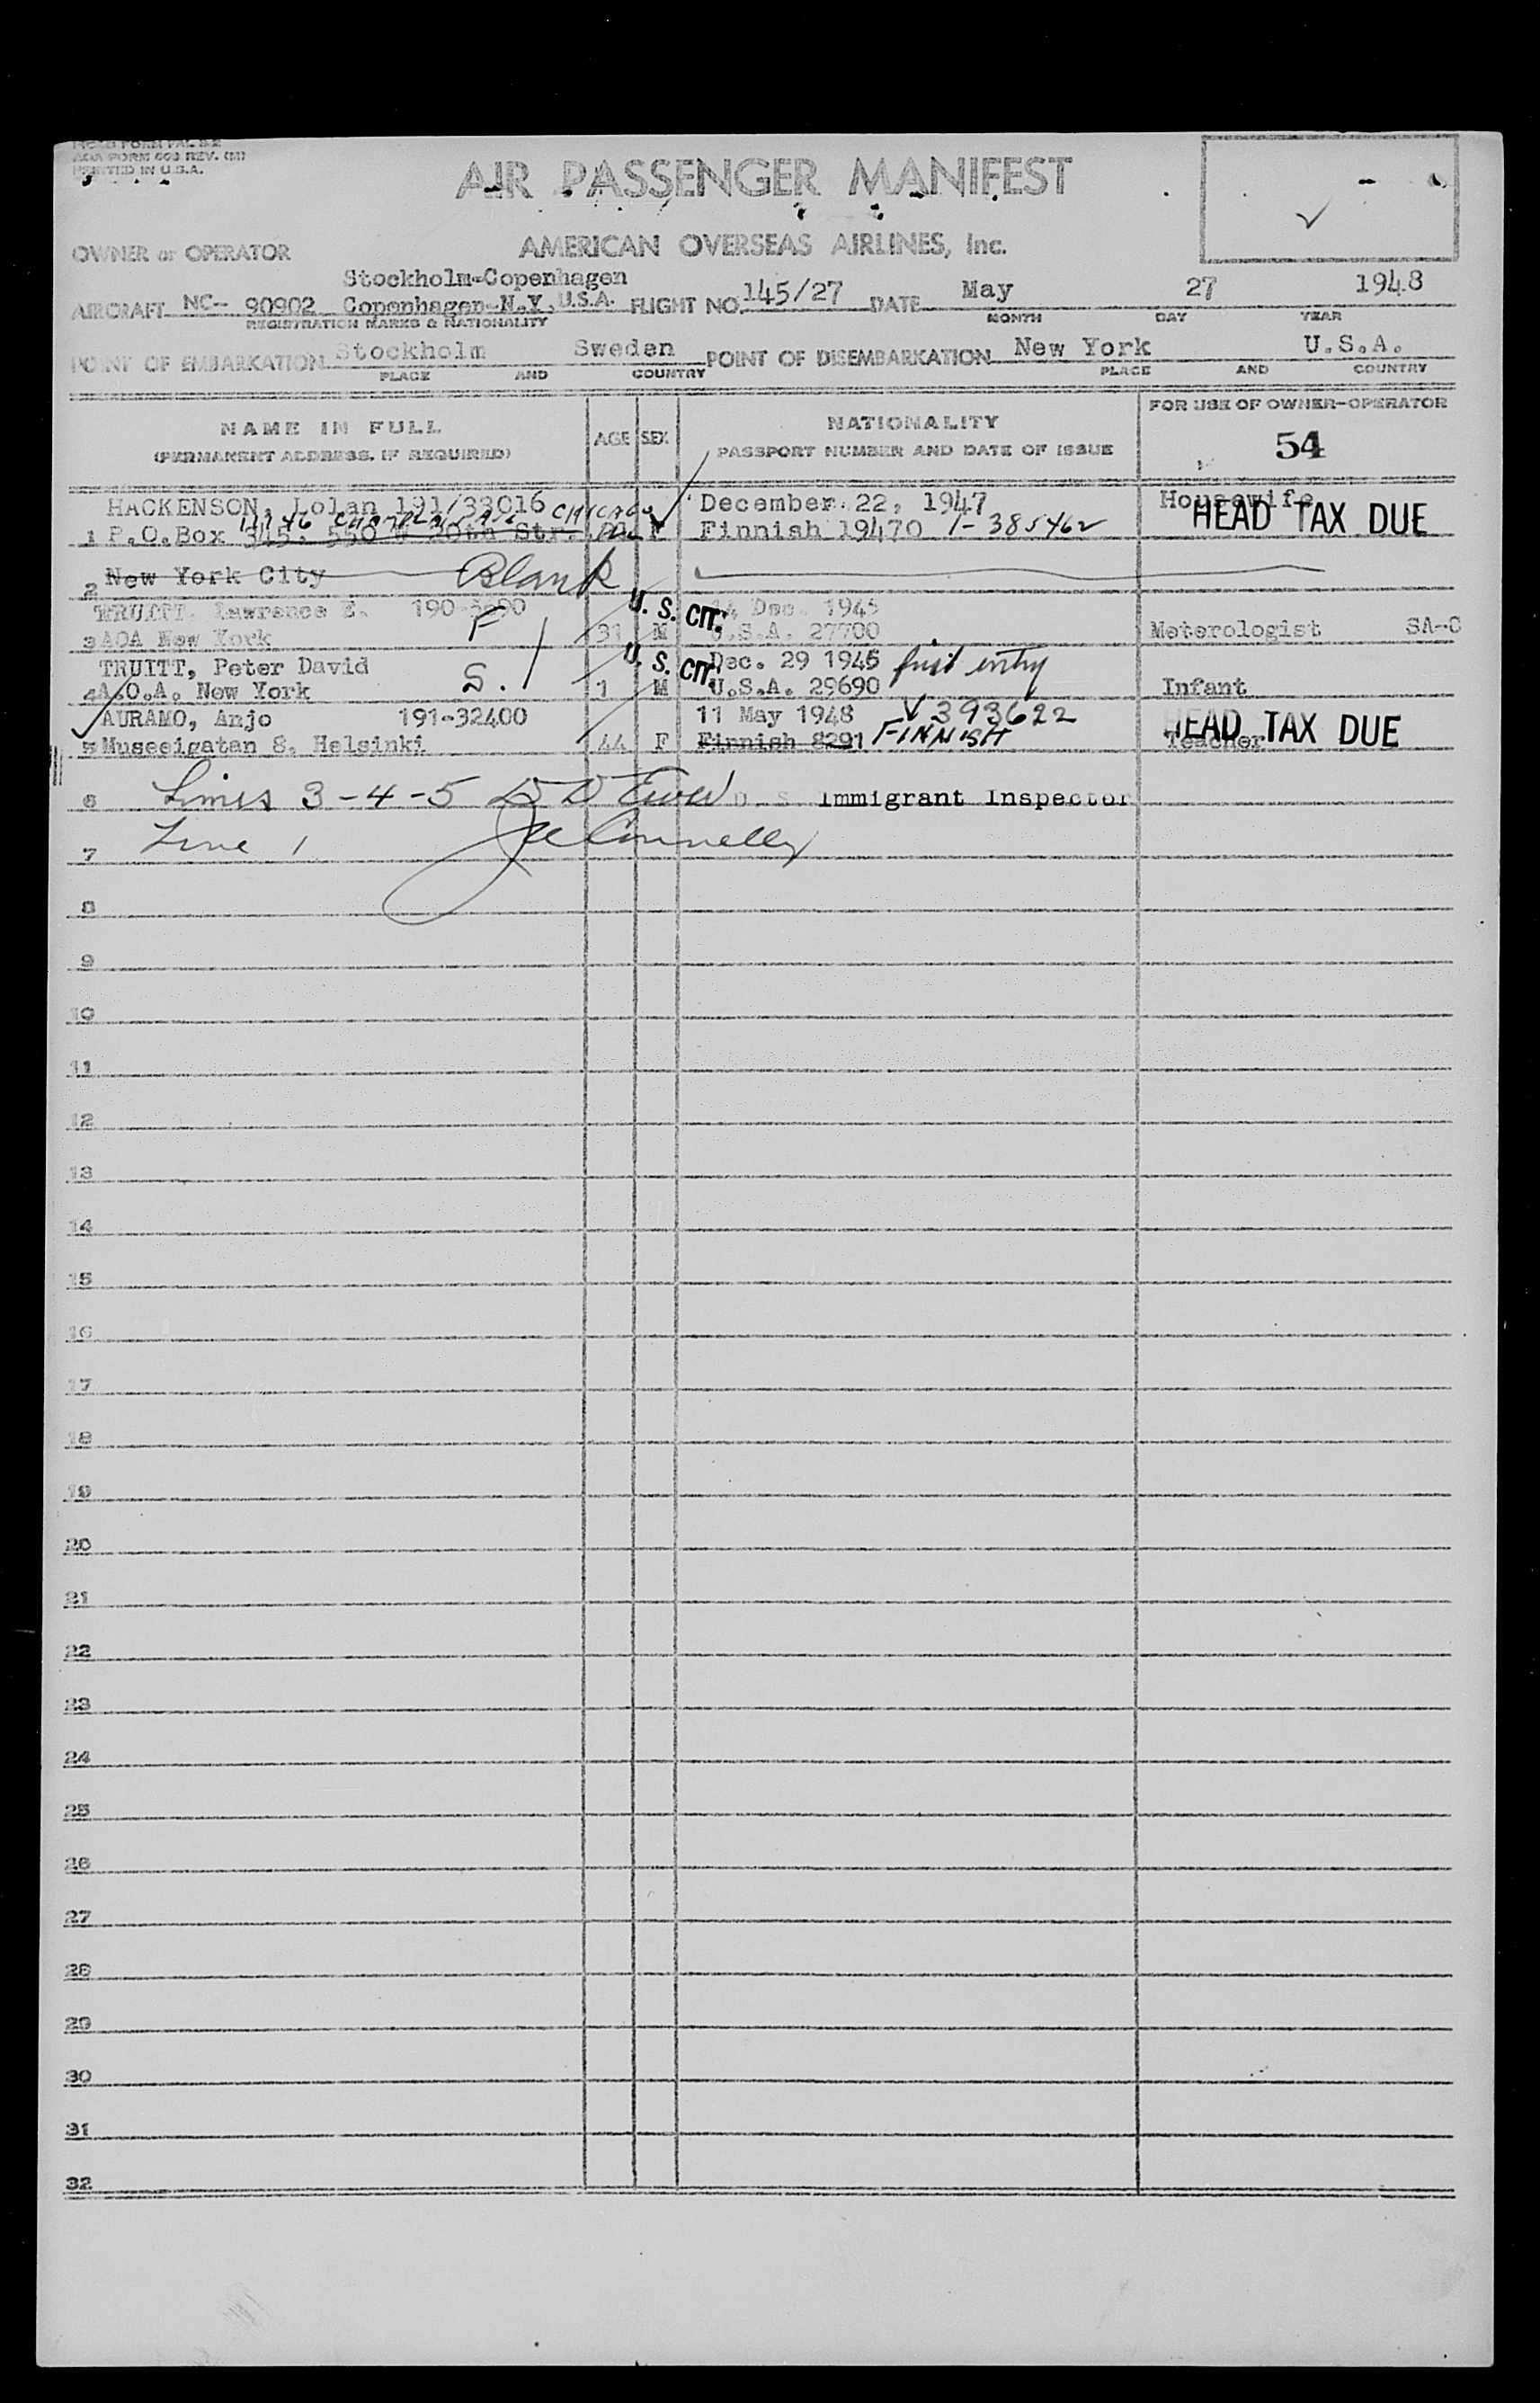 AOA FORM 603 REV. (M)
PRINTED IN U.S.A.
AIR PASSENGER MANIFEST
OWNER or OPERATOR AMERICAN OVERSEAS AIRLINES, Inc.
Stockholm-Copenhagen
AIRCRAFT NC- 90902 Copenhagen-N.Y, U.S.A. FLIGHT NO. 145/27 DATE May 27 1948
REGISTRATION MARKS & NATIONALITY MONTH DAY YEAR
POINT OF EMBARKATION Stockholm Sweden POINT OF DISEMBARKATION New York U.S.A.
PLACE AND COUNTRY PLACE AND COUNTRY
NAME IN FULL AGE SEX NATIONALITY FOR USE OF OWNER-OPERATOR
(PERMANENT ADDRESS, IF REQUIRED) PASSPORT NUMBER AND DATE OF ISSUE 54
HACKENSON, Lolan 191/33016 CHICAGO December 22, 1947 Housewife
HEAD TAX DUE
1 P.O.Box 345, 550 W 20th Str. F Finnish 19470 1-385462
2 New York City Blank
TRUITT, Lawrence E. U. S. CIT. Dec. 1945
F
3 AOA New York 31 M U.S.A. 27700 Meterologist SA-C
TRUITT, Peter David U. S. CIT. Dec. 29 1945 first entry
S.
4 A.O.A. New York 1 M U.S.A. 29690 Infant
AURAMO, Anjo 191-32400 11 May 1948 V 393622
HEAD TAX DUE
5 Museeigatan 8, Helsinki 44 F Finnish 8291 FINNISH Teacher
6 Lines 3-4-5 U. S. Immigrant Inspector
7 Line 1 Connelly
8
9
10
11
12
13
14
15
16
17
18
19
20
21
22
23
24
25
26
27
28
29
30
31
32